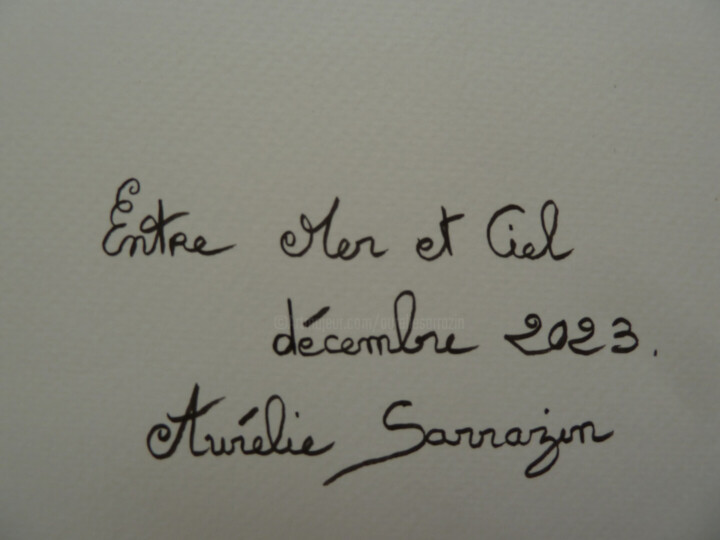 Entre Mer et Ciel
décembre 2023.
Aurélie Sarrazin